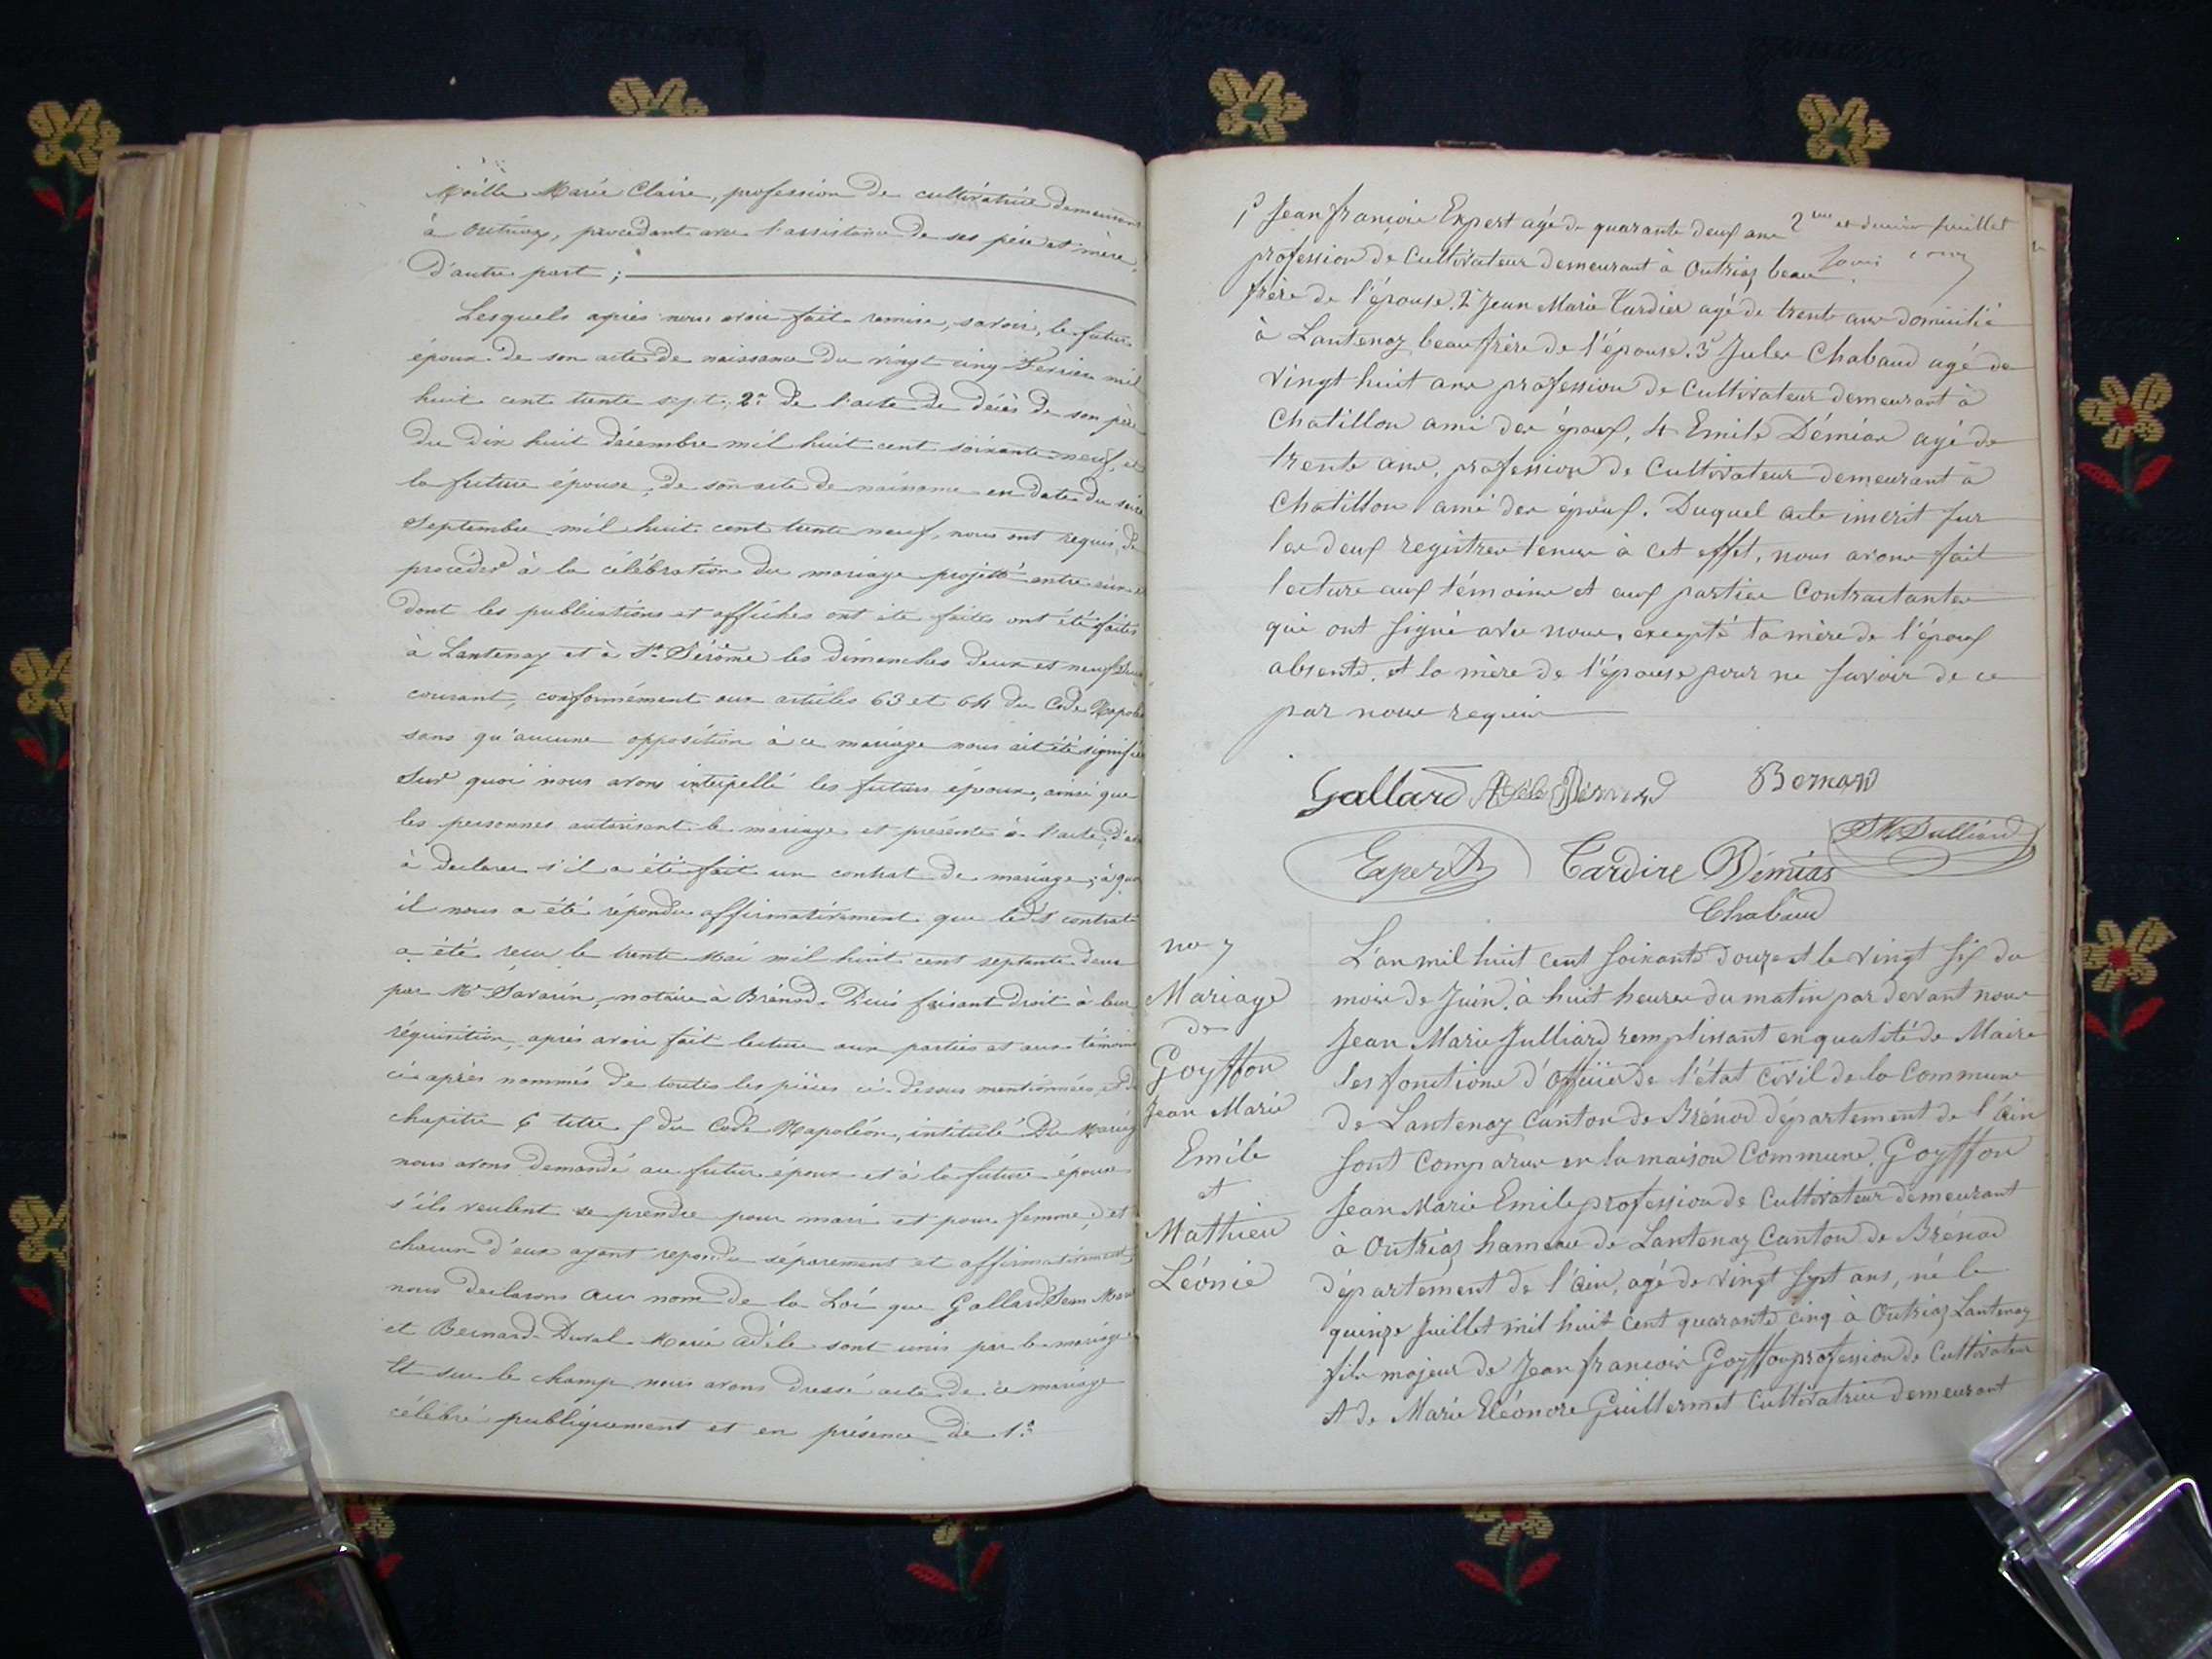 Marie Claire, profession de cultivatrice demeurant
à Outriaz, procédant avec l'assistance de ses père et mère,
D'autre part ;
Lesquels après nous avoir fait remise, savoir, le futur
époux de son acte de naissance du vingt cinq Février mil
huit cent trente sept, 2° de l'acte de décès de son père
du dix huit décembre mil huit cent soixante neuf, et
la future épouse, de son acte de naissance en date du seize
Septembre mil huit cent trente neuf, nous ont requis de
procéder à la célébration du mariage projetté entre eux et
dont les publications et affiches ont été faites ont été faites
à Lantenay et à St. Jérôme les dimanches deux et neuf Juin
courant, conformément aux articles 63 et 64 du Code Napoléon
sans qu'aucune opposition à ce mariage nous ait été signifiée
Sur quoi nous avons interpellé les futurs époux, ainsi que
les personnes autorisant le mariage et présente à l'acte, d'avoir
à declarer s'il a été fait un contrat de mariage, à quoi
il nous a été répondu affirmativement que ledit contrat
a été reçu le trente Mai mil huit cent septante deux
par Me Savarin, notaire à Brénod. Puis faisant droit à leur
réquisition, après avoir fait lecture aux parties et aux témoins
ci-après nommés de toutes les pièces ci-dessus mentionnées, et du
chapitre 6 titre 5 du Code Napoléon, intitulé Du Mariage
nous avons demandé au futur époux et à la future épouse
s'ils veulent se prendre pour mari et pour femme, et
chacun d'eux ayant repondu séparement et affirmativement,
nous declarons au nom de la Loi que Gallard Jean Marie
et Bernard Duval Marie Adèle sont unis par le mariage
Et sur le champ nous avons dressé acte de ce mariage
célébré publiquement et en présence de 1°
1° Jean françois Expert agé de quarante deux ans 2me et dernier feuillet
profession de Cultivateur demeurant à Outriaz, beau
frère de l'épouse. 2° Jean Marie Tardier agé de trente ans domicilié
à Lantenay beau frère de l'épouse. 3° Jules Chabaud agé de
vingt huit ans profession de Cultivateur demeurant à
Chatillon ami des époux, 4 Emile Démias agé de
trente ans, profession de Cultivateur demeurant à
Chatillon ami des époux. Duquel acte inscrit sur
les deux registres tenus à cet effet, nous avons fait
lecture aux témoins et aux parties Contractantes
qui ont signé avec nous, excepté la mère de l'époux
absente, et la mère de l'épouse pour ne savoir de ce
par nous requis
Gallard Adèle Bernard Bernard
Expert Tardire Démias JM Julliard
Chabaud
no 7
Mariage
de
Goyffon
Jean Marie
Emile
et
Mathieu
Léonie
L'an mil huit cent soixante douze et le vingt six du
mois de Juin, à huit heures du matin par devant nous
Jean Marie Julliard remplissant en qualité de Maire
les fonctions d'officier de l'état civil de la Commune
de Lantenay Canton de Brénod département de l'Ain
sont Comparus en la maison Commune, Goyffon
Jean Marie Emile profession de Cultivateur demeurant
à Outriaz hameau de Lantenay Canton de Brénod
département de l'Ain, agé de vingt sept ans, né le
quinze Juillet mil huit Cent quarante cinq à Outriaz Lantenay
fils majeur de Jean francois Goyffon profession de Cultivateur
et de Marie Eléonore Guillermet Cultivatrice demeurant